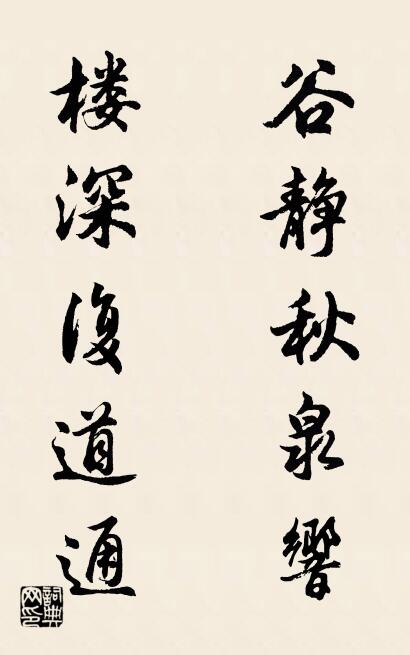 谷静秋泉響
楼深復道通
詞典网印